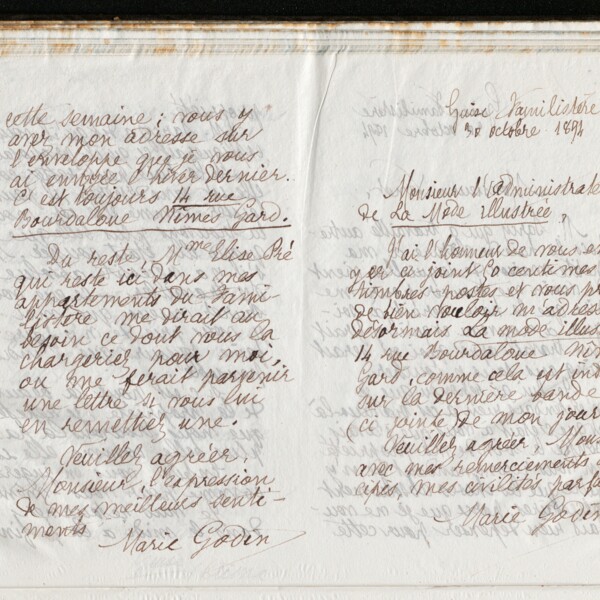 cette semaine ; vous y
avez mon adresse sur
l'enveloppe que je vous
ai envoyée hier dernier.
C'est toujours 14 rue
Bourdaloue Nîmes Gard.
Du reste, Mme Elise Pré
qui reste ici dans mes
appartements du Fami-
listère me dirait au
besoin ce dont vous la
chargeriez pour moi,
ou me ferait parvenir
une lettre si vous lui
en remettiez une.
Veuillez agréer,
Monsieur, l'expression
de mes meilleurs senti-
ments
Marie Godin
Guise Familistère
30 octobre 1894
Monsieur l'administrate
de La Mode illustrée,
J'ai l'honneur de vous en
yer ci joint 50 centimes
timbres postes et vous pr
de bien vouloir m'adress
désormais La mode illus
14 rue Bourdaloue Nîm
Gard, comme cela est ind
sur la dernière bande
(ci jointe) de mon jour
Veuillez agréer, Mons
avec mes remerciements
mes civilités parfa
Marie Godin